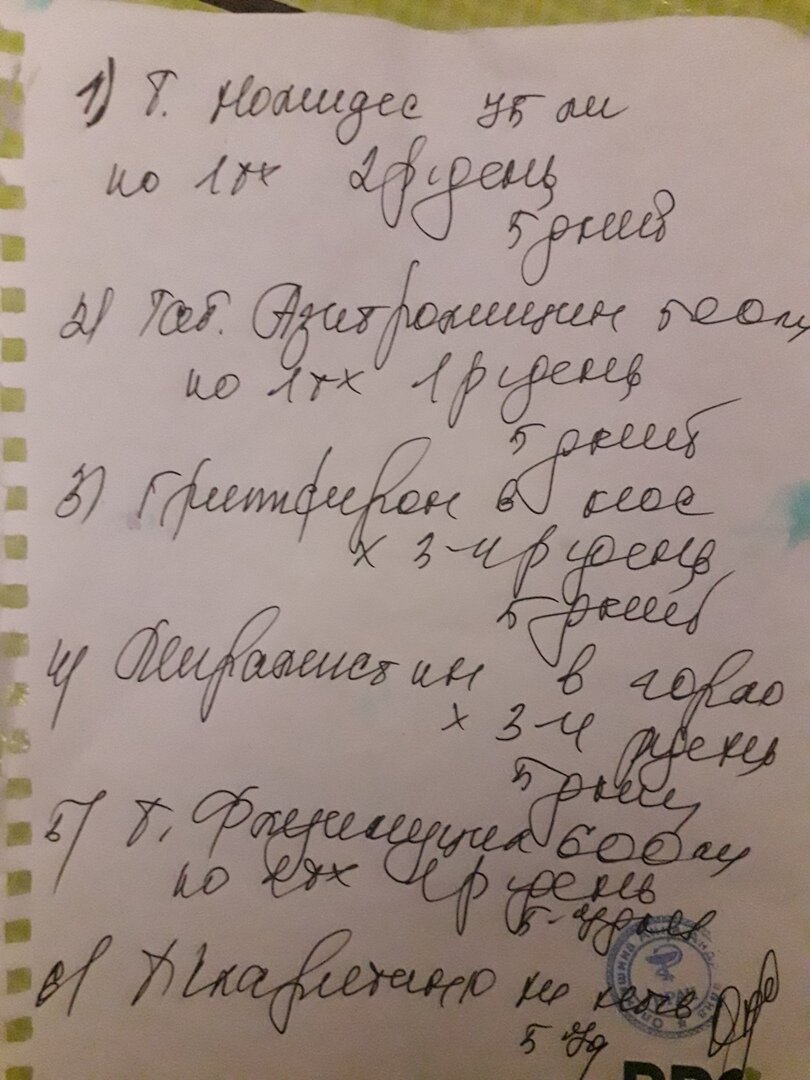 1) Т. Номидес 75 мг
по 1 тх 2 р/день
5 дней
2) Таб. Азитромицин 500 мг
по 1 тх 1 р/день
5 дней
3) Гриппферон в нос
х 3-4 р/день
5 дней
4) Мирамистин в горло
х 3-4 р/день
5 дней
5) Т. Флуимуцил 600 мг
по 1 р день
5-7 дней
6)
5 7д